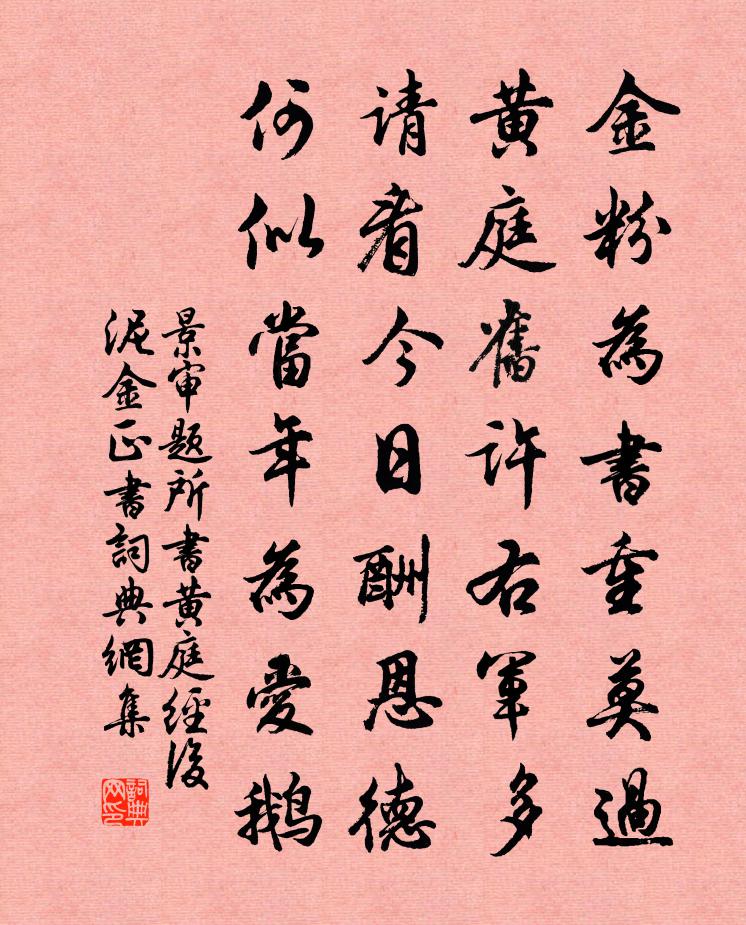 金粉為書重莫過
黃庭舊許右軍多
请看今日酬恩德
何似當年為愛鹅
景审题所書黄庭經後
泥金正書詞典網集
詞典网印